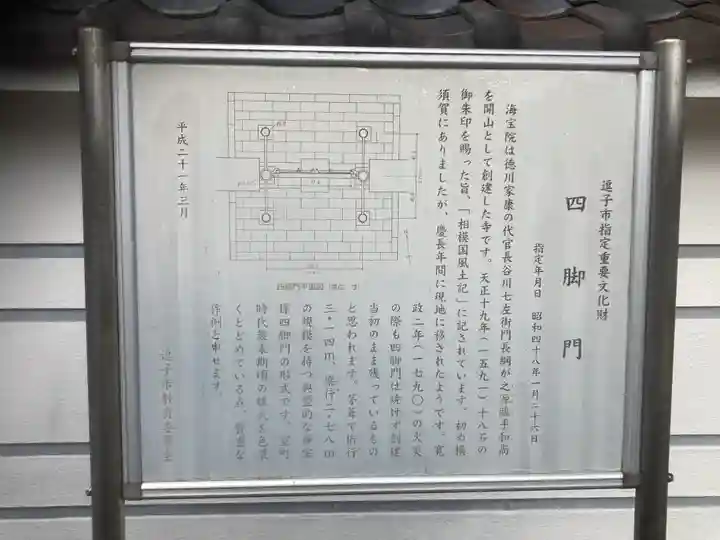 逗子市指定重要文化財
四脚門
指定年月日　昭和四十八年一月二十六日
海宝院は徳川家康の代官長谷川七左衛門長綱が之源臨乎和尚
を開山として創建した寺です。天正十九年（一五九一）十八石の
御朱印を賜った旨、「相模国風土記」に記されています。初め横
須賀にありましたが、慶長年間に現地に移されたようです。寛
政二年（一七九〇）の火災
の際も四脚門は焼けず創建
当初のまま残っているもの
と思われます。茅葺で桁行
三・一四m、梁行二・七八m
の規模を持つ典型的な禅宗
様四脚門の形式です。室町
時代最末期頃の様式を色濃
くとどめている点、貴重な
作例と申せます。
平成二十一年三月
逗子市教育委員会
四脚門平面図